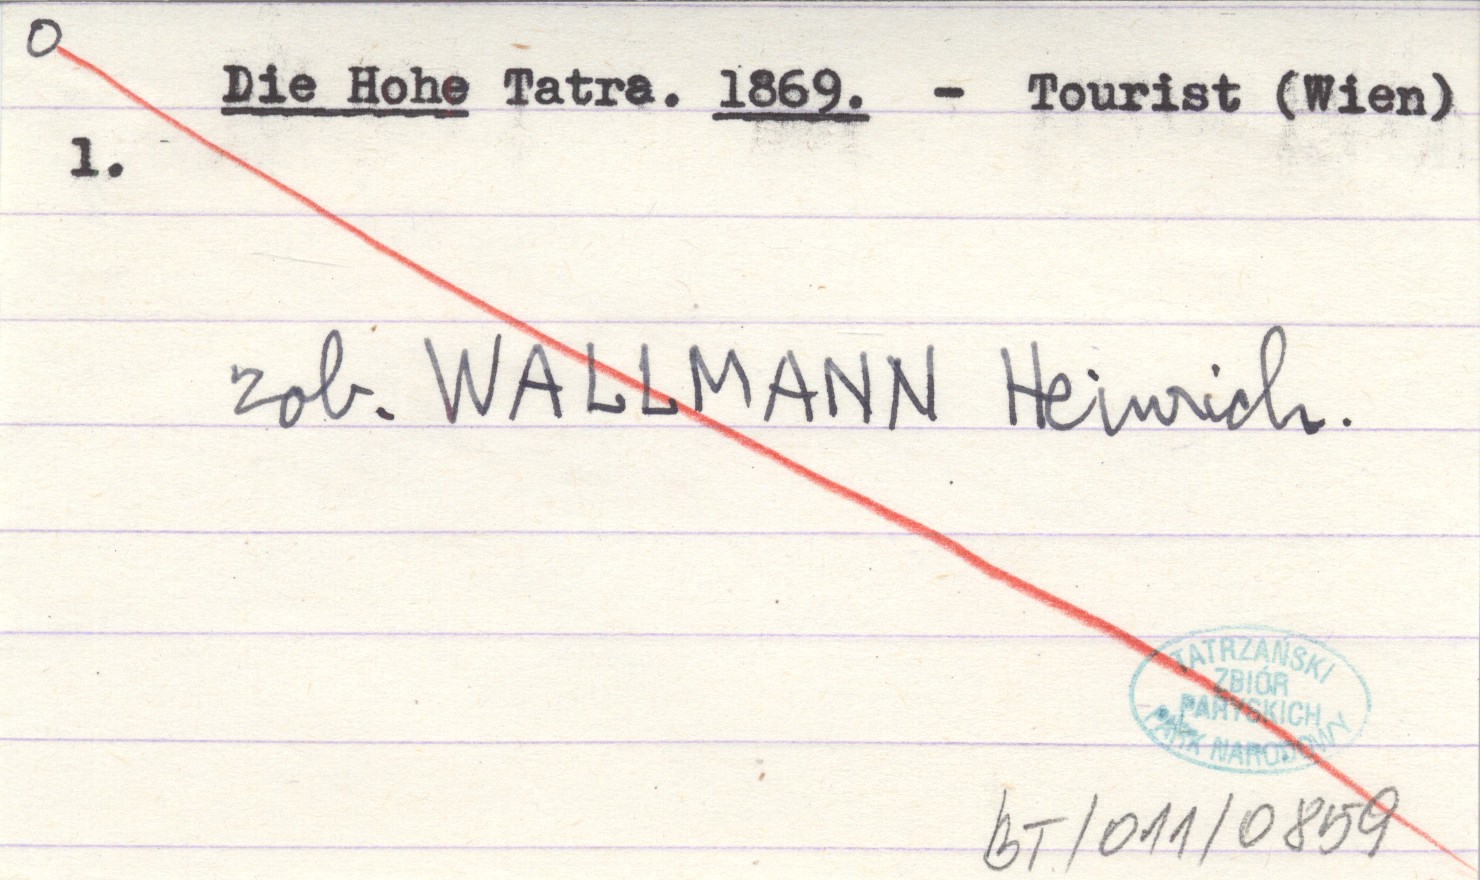 O
Die Hohe Tatra. 1869. - Tourist (Wien)
1.
zob. WALLMANN Heinrich.
TATRZAŃSKI
ZBIÓR
PARYSKICH
PARK NARODOWY
BT/011/0859